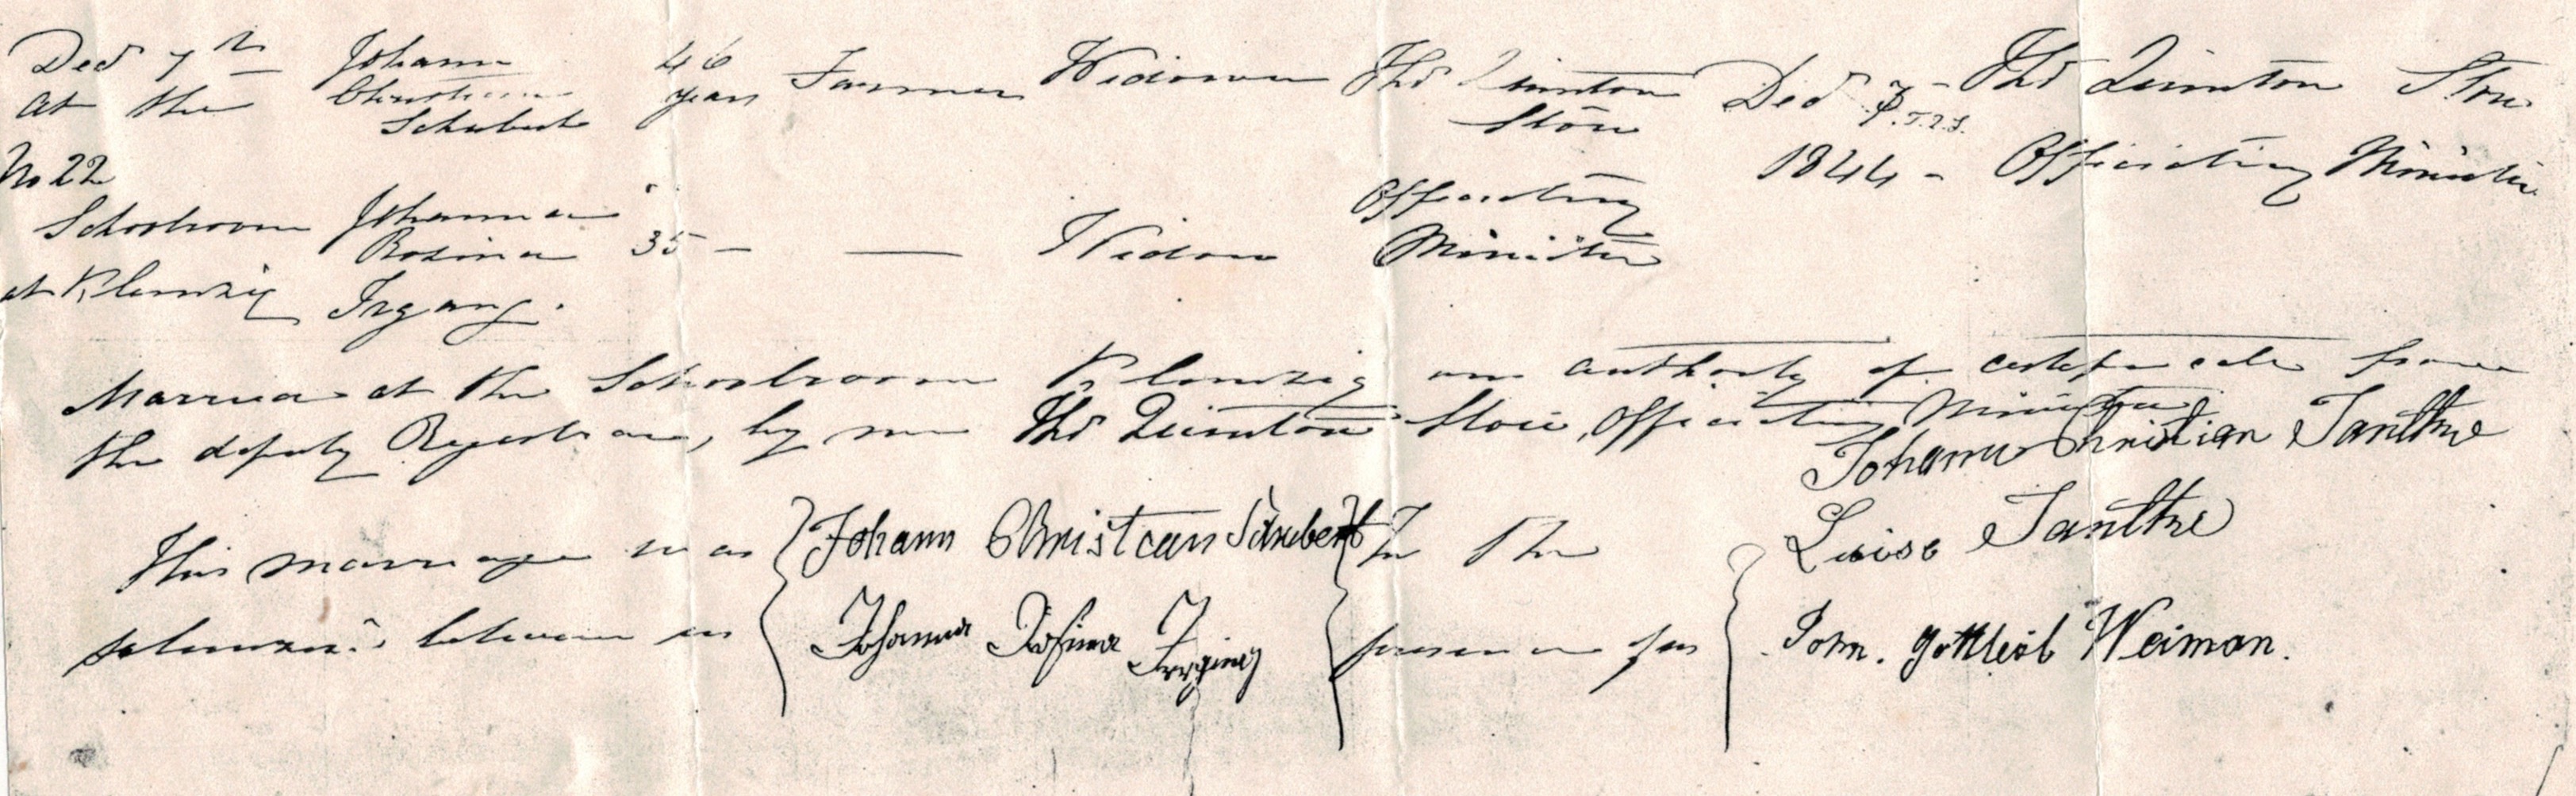 Decr 7th Johann 46 Farmer Widower Thos Quinton Decr 7 - Thos Quinton Stow
at the Christian years Stow T.Q.S.
Schubert 1844 - Officiating Minister
No 22
Schoolroom Johanna Officiating
Rosina 35 - — Widow Minister
at Klemzig Irgang.
Married at the Schoolroom Klemzig on authority of certificate from
the deputy Registrar, by me Thos Quinton Stow, Officiating Minister
Johann Christian
This marriage was Johann Christian Schubert In the Luise
solemnized between us Johanna Rosina presence of us Joh. Gottlieb Weiman.